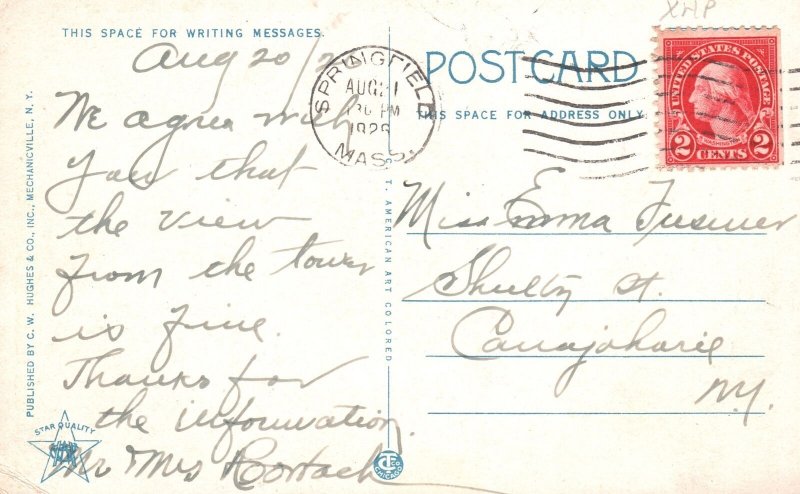 XHP
THIS SPACE FOR WRITING MESSAGES.
POST CARD
THIS SPACE FOR ADDRESS ONLY
SPRINGFIELD
AUG 21
PM
MASS.
UNITED STATES POSTAGE
WASHINGTON
2 CENTS 2
Aug 20/2
We agree with
you that
the view
from the tower
is fine.
Thanks for
the information
Mr Mrs
Miss Emma
St.
Canajoharie
N.Y.
PUBLISHED BY C. W. HUGHES & CO., INC., MECHANICVILLE, N. Y.
T. AMERICAN ART COLORED
STAR QUALITY
CHICAGO